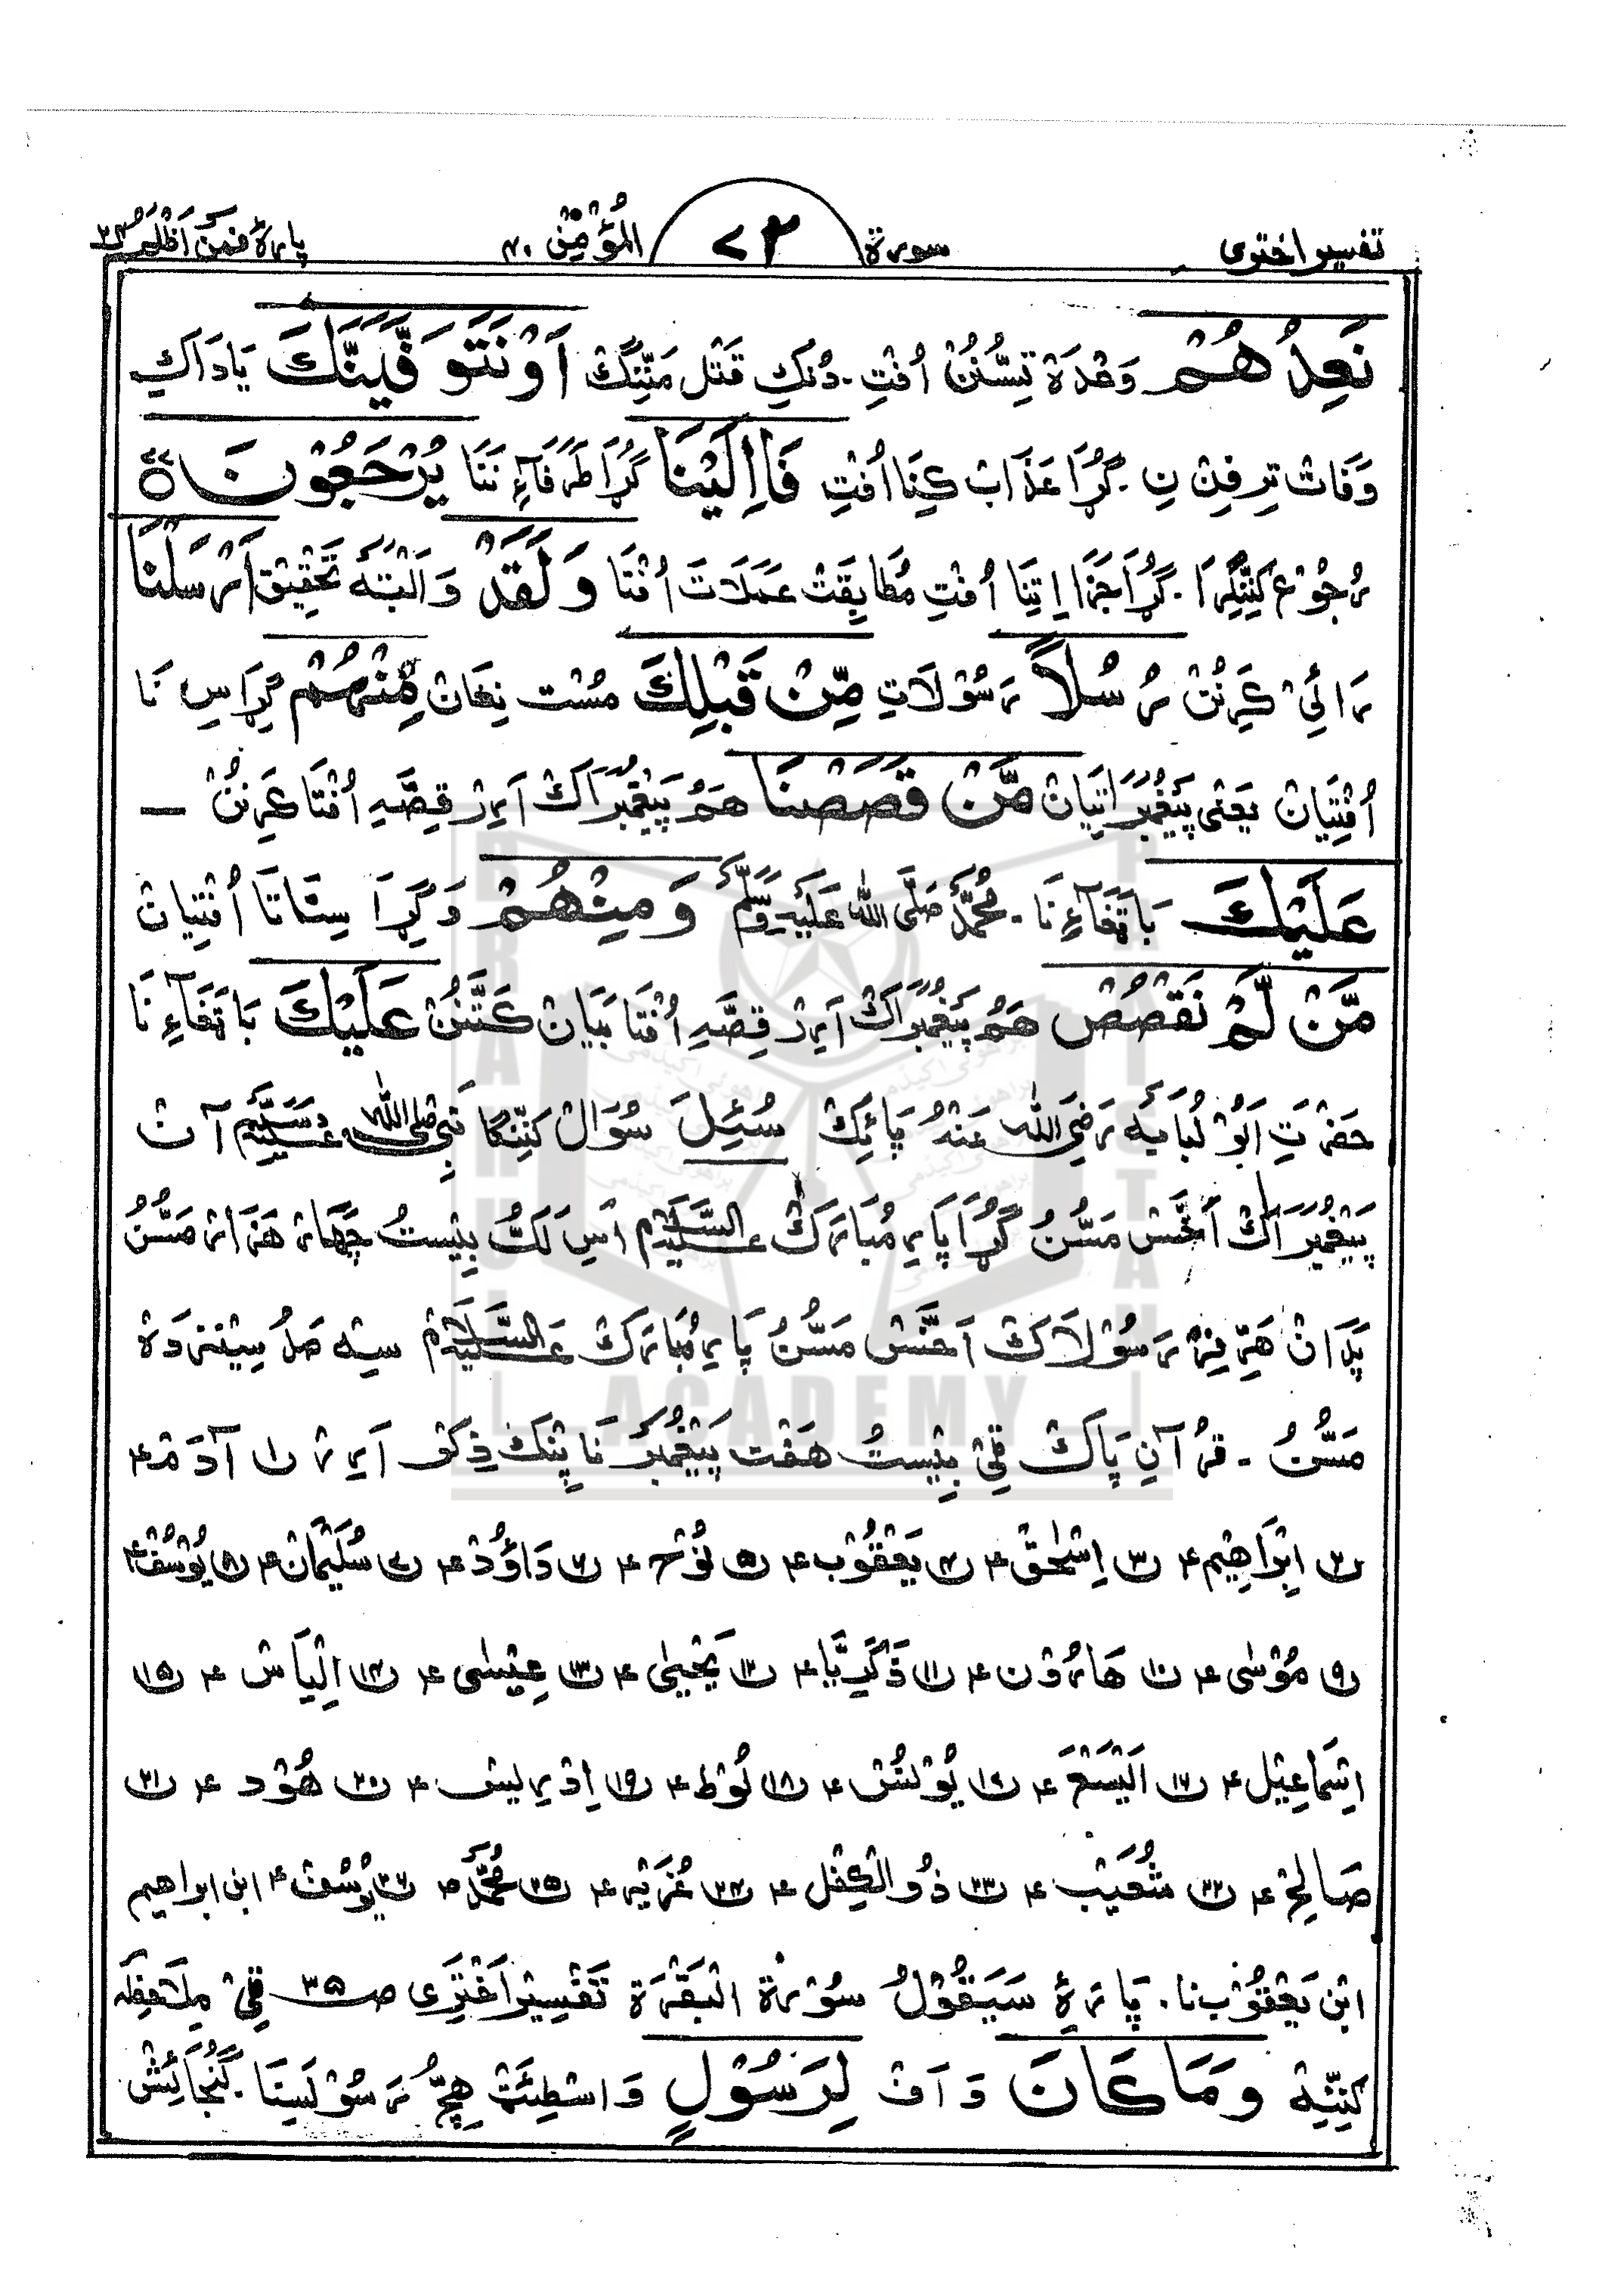 تفسیر اختری سورة ۷۲ المُؤْمِنْ ۴۰ پارهٔ فمن اظلم ۲۴
نَعِدُهُمْ وَعْدَهْ تِسُّنُنْ اُفْتِ۔ دُنکِ قَتْل مَنِّنگ اَوْ نَتَوَفَّیَنَّكَ یَادَاکِ
وَفَات تِرِفِن نِ۔ گُڑَا عَذَابْ کِنَا اُفْتِ فَاِلَیْنَا گُڑَا طَرَفَآءِ نَنَا یُرْجَعُوْنَ ۷۷
رُجُوْع کَنِّنگِرَا۔ گُڑَا جَزَا اِتِنَا اُفْتِ مُطَابِقَتْ عَمَلَاتَ اُفْتَا وَلَقَدْ وَالْبَتَّه تَحْقِیْق اَرْسَلْنَا
رَائِیْ کَرِنُنْ رُسُلًا رَسُوْلَاتِ مِّنْ قَبْلِكَ مُسْت نِغَانْ مِنْهُمْ گِڑَاسِ نَا
اُفْتِیَانْ یَعْنِی پَیْغَمْبَرَاتِیَانْ مَّنْ قَصَصْنَا هَمُ پَیْغَمْبَرَاکْ اَیرْ قِصَّهِ اُفْتَا عَرِنُنْ ــ
عَلَیْكَ بَاتَغَآءِ نَا۔ مُحَمَّدْ صَلَّی اللّٰهُ عَلَیْهِ وَسَلَّمْ وَمِنْهُمْ وَ گِڑَا سِتَاتَا اُفْتِیَان
مَّنْ لَّمْ نَقْصُصْ هَمُ پَیْغَمْبَرَاکْ اَیرْ قِصَّهِ اُفْتَا بَیَانْ کَتَّنُنْ عَلَیْكَ بَاتَغَآءِ نَا
حَضْرَتِ اَبُوْ لُبَابَه رَضِیَ اللّٰهُ عَنْهُ پَائِکْ سُئِلَ سُوَالْ کَنِّنگا نَبِی صلی اللّٰه علیه وسلم آن
پَیْغَمْبَرَاکْ اَخَّسْ مَسُّنُ گُڑَا پَایرِ مُبَارَکْ عَلَیْهِ السَّلَامْ اَسِ لَکُّ بِیْسْتُ چَهَار هَزَارْ مَسُّنُ
پَدَانْ هَرِّفِرْ رَسُوْلَاکْ اَخَّسْ مَسُّنُ پَایرِ مُبَارَکْ عَلَیْهِ السَّلَامْ سِه صَدُ سِیْنَزدَهْ
مَسُّنُ ۔ قُرْآنِ پَاکْ قِیْ بِیْسْتُ هَفْت پَیْغَمْبَرْ نَا پِنْک ذِکْر اَیرِرْ ۱ آدَمْ ؑ
۲ اِبْرَاهِیْم ؑ ۳ اِسْحٰق ؑ ۴ یَعْقُوْب ؑ ۵ نُوْح ؑ ۶ دَاوٗد ؑ ۷ سُلَیْمَانْ ؑ ۸ یُوْسُفْ ؑ
۹ مُوْسٰی ؑ ۱۰ هَارُوْن ؑ ۱۱ ذَکَرِیَّا ؑ ۱۲ یَحْییٰ ؑ ۱۳ عِیْسٰی ؑ ۱۴ اِلْیَاسْ ؑ ۱۵
اِسْمَاعِیْل ؑ ۱۶ اَلْیَسَعْ ؑ ۱۷ یُوْنُسْ ؑ ۱۸ لُوْط ؑ ۱۹ اِدْرِیس ؑ ۲۰ هُوْد ؑ ۲۱
صَالِحْ ؑ ۲۲ شُعَیْب ؑ ۲۳ ذُو الْکِفْل ؑ ۲۴ عُزَیْر ؑ ۲۵ مُحَمَّد ؐ ۲۶ یُوْسُفْ ؑ ابن ابراهیم
ابْن یَعْقُوْب نا۔ پَارَهٔ سَیَقُوْلُ سُوْرَة الْبَقَرَة تَفْسِیْر اَخْتَرِی ص ۳۵ قِیْ مِلَاحِظَه
کَنِّیْه وَمَا كَانَ وَ اَفْ لِرَسُوْلٍ وَاسْطِئَتْ هِچُّ رَسُوْلَسِنَا۔ گُنْجَائِشْ
BRAHUI
PUBLI
ACADEMY